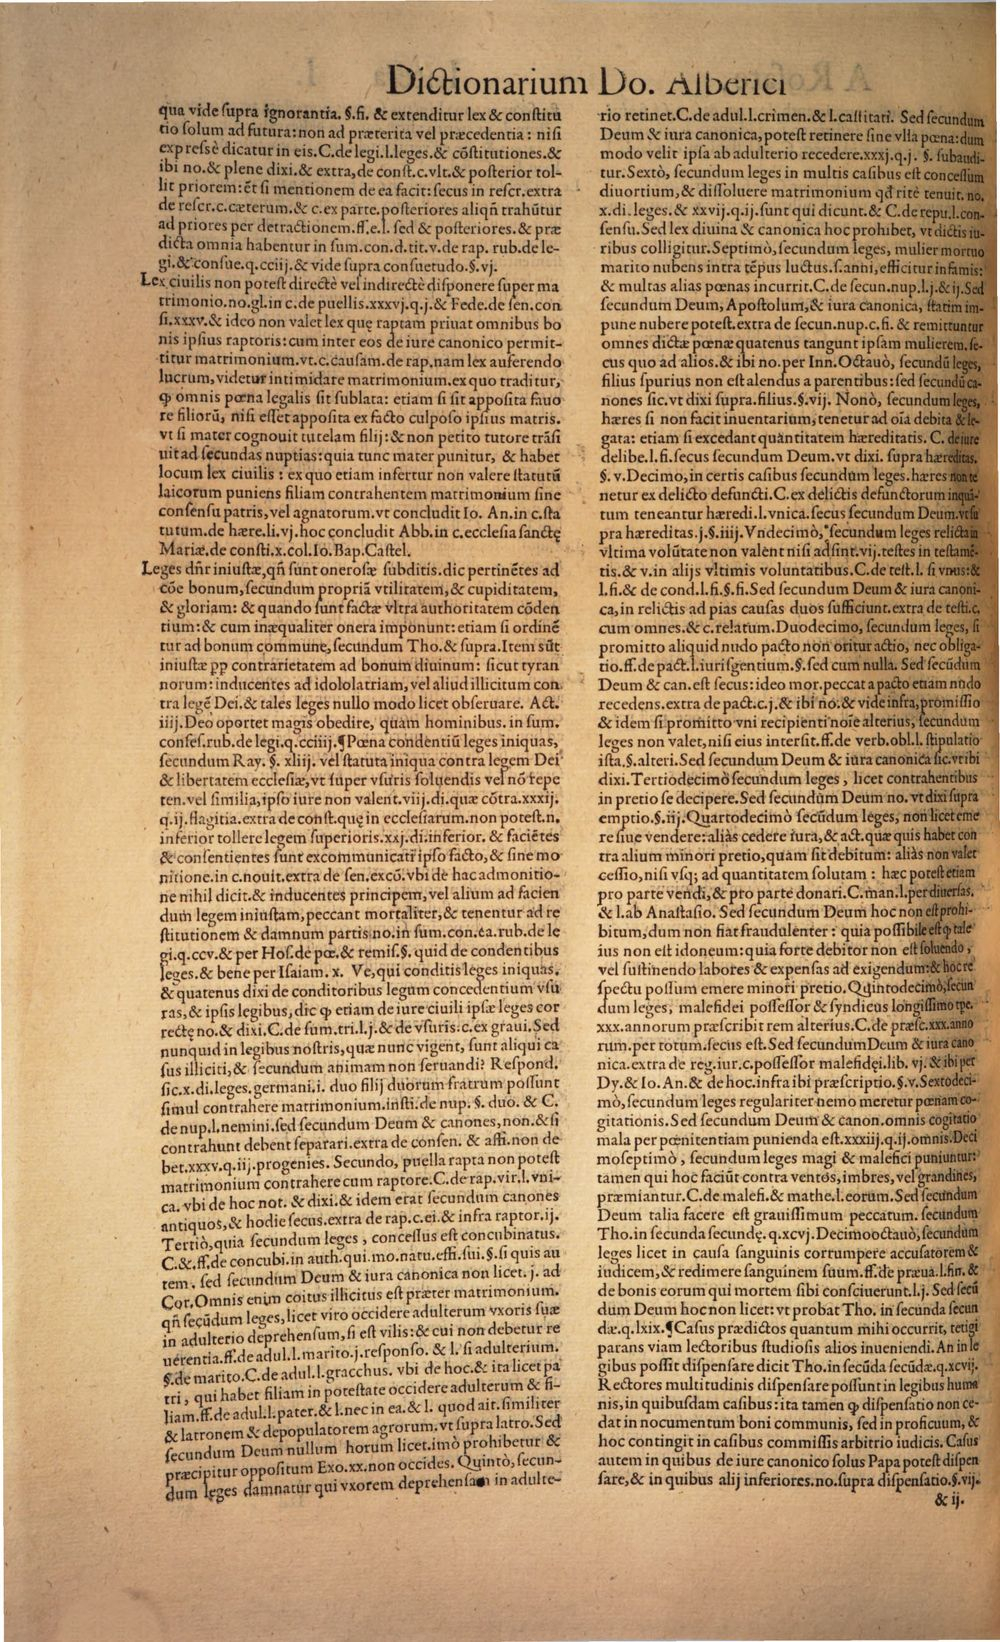 Dictionarium Do. Alberici
qua vide supra ignorantia. §.fi. & extenditur lex & constitu
tio solum ad futura: non ad præterita vel præcedentia : nisi
expressè dicatur in eis.C.de legi.l.leges.& cōstitutiones.&
ibi no.& plene dixi.& extra,de const.c.vlt.& posterior tol-
lit priorem: ēt si mentionem de ea facit: secus in rescr.extra
de rescr.c.cæterum.& c.ex parte.posteriores aliqñ trahūtur
ad priores per detractionem.ff.e.l. sed & posteriores.& præ
dicta omnia habentur in sum.con.d.tit.v.de rap. rub.de le-
gi.& consue.q.cciij.& vide supra consuetudo.§.vj.
Lex ciuilis non potest directè vel indirectè disponere super ma
trimonio.no.gl.in c.de puellis.xxxvj.q.j.& Fede.de sen.con
si.xxxv.& ideo non valet lex quę raptam priuat omnibus bo
nis ipsius raptoris: cum inter eos de iure canonico permit-
titur matrimonium.vt.c.causam.de rap.nam lex auferendo
lucrum, videtur intimidare matrimonium.ex quo traditur,
ꝙ omnis pœna legalis sit sublata: etiam si sit apposita fauo
re filiorū, nisi esset apposita ex facto culposo ipsius matris.
vt si mater cognouit tutelam filij: & non petito tutore trāsi
uit ad secundas nuptias: quia tunc mater punitur, & habet
locum lex ciuilis : ex quo etiam infertur non valere statutū
laicorum puniens filiam contrahentem matrimonium sine
consensu patris, vel agnatorum.vt concludit Io. An.in c.sta
tutum.de hære.li.vj.hoc concludit Abb.in c.ecclesia sanctę
Mariæ,de consti.x.col.Io.Bap.Castel.
Leges dñr iniustæ,qñ sunt onerosæ subditis.dic pertinētes ad
cōe bonum,secundum propriā vtilitatem,& cupiditatem,
& gloriam: & quando sunt factæ vltra authoritatem cōden
tium:& cum inæqualiter onera imponunt: etiam si ordinē
tur ad bonum commune, secundum Tho.& supra.Item sūt
iniustæ pp contrarietatem ad bonum diuinum: sicut tyran
norum: inducentes ad idololatriam, vel aliud illicitum con
tra legē Dei.& tales leges nullo modo licet obseruare. Act.
iiij.Deo oportet magis obedire, quàm hominibus. in sum.
confes.rub.de legi.q.cciiij.¶Pœna condentiū leges iniquas,
secundum Ray. §. xliij. vel statuta iniqua contra legem Dei
& libertatem ecclesiæ,vt super vsuris soluendis vel nō repe
ten.vel similia,ipso iure non valent.viij.di.quæ cōtra.xxxij.
q.ij.flagitia.extra de const.quę in ecclesiarum.non potest.n.
inferior tollere legem superioris.xxj.di.inferior. & faciētes
& consentientes sunt excommunicati ipso facto,& sine mo
nitione.in c.nouit.extra de sen.excō.vbi de hac admonitio-
ne nihil dicit.& inducentes principem,vel alium ad facien
dum legem iniustam,peccant mortaliter,& tenentur ad re
stitutionem & damnum partis no.in sum.con.ea.rub.de le
gi.q.ccv.& per Hos.de pœ.& remis.§. quid de condentibus
leges.& bene per Isaiam. x. Ve,qui conditis leges iniquas.
& quatenus dixi de conditoribus legum concedentium vsu
ras,& ipsis legibus, dic ꝙ etiam de iure ciuili ipsæ leges cor
rectę no.& dixi.C.de sum.tri.l.j.& de vsuris.c.ex graui.Sed
nunquid in legibus nostris,quæ nunc vigent, sunt aliqui ca
sus illiciti,& secundum animam non seruandi? Respond.
sic.x.di.leges.germani.i. duo filij duorum fratrum possunt
simul contrahere matrimonium.insti.de nup. §. duo. & C.
de nup.l.nemini.sed secundum Deum & canones, non.& si
contrahunt debent separari.extra de consen. & affi.non de
bet.xxxv.q.iij.progenies. Secundo, puella rapta non potest
matrimonium contrahere cum raptore.C.de rap.vir.l.vni-
ca. vbi de hoc not. & dixi.& idem erat secundum canones
antiquos,& hodie secus.extra de rap.c.ei.& infra raptor.ij.
Tertiò,quia secundum leges , concessus est concubinatus.
C.&.ff.de concubi.in auth.qui.mo.natu.effi.sui.§.si quis au
tem . sed secundum Deum & iura canonica non licet. j. ad
Cor.Omnis enim coitus illicitus est præter matrimonium.
qñ secūdum leges, licet viro occidere adulterum vxoris suæ
in adulterio deprehensum,si est vilis:& cui non debetur re
uerentia.ff.de adul.l.marito.j.responso. & l. si adulterium.
§.de marito.C.de adul.l.gracchus. vbi de hoc.& ita licet pa
tri , qui habet filiam in potestate occidere adulterum & fi-
liam.ff.de adul.l.pater.& l.nec in ea.& l. quod ait.similiter
& latronem & depopulatorem agrorum.vt supra latro.Sed
secundum Deum nullum horum licet.imò prohibetur &
præcipitur oppositum Exo.xx.non occides. Quintò, secun-
dum leges damnatur qui vxorem deprehensam in adulte-
rio retinet.C.de adul.l.crimen.& l.castitati. Sed secundum
Deum & iura canonica,potest retinere sine vlla pœna: dum
modo velit ipsa ab adulterio recedere.xxxj.q.j. §. subaudi-
tur.Sextò, secundum leges in multis casibus est concessum
diuortium,& dissoluere matrimonium qđ ritè tenuit. no.
x.di.leges.& xxvij.q.ij.sunt qui dicunt.& C.de repu.l.con-
sensu.Sed lex diuina & canonica hoc prohibet, vt dictis iu-
ribus colligitur.Septimò,secundum leges, mulier mortuo
marito nubens intra tēpus luctus.s.anni,efficitur infamis:
& multas alias pœnas incurrit.C.de secun.nup.l.j.& ij.Sed
secundum Deum, Apostolum,& iura canonica, statim im-
pune nubere potest.extra de secun.nup.c.fi.& remittuntur
omnes dictæ pœnæ quatenus tangunt ipsam mulierem.se-
cus quo ad alios.& ibi no.per Inn.Octauò, secundū leges,
filius spurius non est alendus a parentibus: sed secundū ca-
nones sic.vt dixi supra.filius.§.vij. Nonò, secundum leges,
hæres si non facit inuentarium,tenetur ad oīa debita & le-
gata: etiam si excedant quantitatem hæreditatis. C. de iure
delibe.l.fi.secus secundum Deum.vt dixi. supra hæreditas.
§.v.Decimo, in certis casibus secundum leges.hæres non te
netur ex delicto defuncti.C.ex delictis defunctorum inquā-
tum teneantur hæredi.l.vnica.secus secundum Deum.vt su
pra hæreditas.j.§.iiij.Vndecimò, secundum leges relicta in
vltima volūtate non valent nisi adsint.vij.testes in testamē-
tis.& v.in alijs vltimis voluntatibus.C.de test.l. si vnus: &
l.fi.& de cond.l.fi.§.fi.Sed secundum Deum & iura canoni-
ca,in relictis ad pias causas duos sufficiunt.extra de testi.c.
cum omnes.& c.relatum.Duodecimo, secundum leges, si
promitto aliquid nudo pacto non oritur actio, nec obliga-
tio.ff.de pact.l.iurisgentium.§.sed cum nulla. Sed secūdum
Deum & can.est secus: ideo mor.peccat a pacto etiam nudo
recedens.extra de pact.c.j.& ibi no.& vide infra,promissio
& idem si promitto vni recipienti noīe alterius, secundum
leges non valet,nisi eius intersit.ff.de verb.obl.l. stipulatio
ista.§.alteri.Sed secundum Deum & iura canonica sic.vt ibi
dixi.Tertiodecimò secundum leges , licet contrahentibus
in pretio se decipere.Sed secundum Deum no. vt dixi supra
emptio.§.iij.Quartodecimò secūdum leges, non licet eme
re siue vendere: aliàs cedere iura,& act.quæ quis habet con
tra alium minori pretio,quàm sit debitum: aliàs non valet
cessio,nisi vsq; ad quantitatem solutam : hæc potest etiam
pro parte vendi,& pro parte donari.C.man.l.per diuersas.
& l.ab Anastasio. Sed secundum Deum hoc non est prohi-
bitum,dum non fiat fraudulenter : quia possibile est ꝙ tale
ius non est idoneum: quia forte debitor non est soluendo ,
vel sustinendo labores & expensas ad exigendum:& hoc re
spectu possum emere minori pretio.Quintodecimò,secun
dum leges, malefidei possessor & syndicus longissimo tpe.
xxx.annorum præscribit rem alterius.C.de præsc.xxx.anno
rum.per totum.secus est.Sed secundum Deum & iura cano
nica.extra de reg.iur.c.possessor malefidei.lib. vj.& ibi per
Dy.& Io.An.& de hoc.infra ibi præscriptio.§.v.Sextodeci-
mò,secundum leges regulariter nemo meretur pœnam co-
gitationis.Sed secundum Deum & canon.omnis cogitatio
mala per pœnitentiam punienda est.xxxiij.q.ij.omnis.Deci
moseptimò , secundum leges magi & malefici puniuntur:
tamen qui hoc faciūt contra ventos,imbres,vel grandines,
præmiantur.C.de malefi.& mathe.l.eorum.Sed secundum
Deum talia facere est grauissimum peccatum. secundum
Tho.in secunda secundę.q.xcvj.Decimooctauò,secundum
leges licet in causa sanguinis corrumpere accusatorem &
iudicem,& redimere sanguinem suum.ff.de præua.l.fin. &
de bonis eorum qui mortem sibi consciuerunt.l.j. Sed secū
dum Deum hoc non licet: vt probat Tho. in secunda secun
dæ.q.lxix.¶Casus prædictos quantum mihi occurrit, tetigi
parans viam lectoribus studiosis alios inueniendi.An in le
gibus possit dispensare dicit Tho.in secūda secūdæ.q.xcvij.
Rectores multitudinis dispensare possunt in legibus huma
nis,in quibusdam casibus: ita tamen ꝙ dispensatio non ce-
dat in nocumentum boni communis, sed in proficuum, &
hoc contingit in casibus commissis arbitrio iudicis. Casus
autem in quibus de iure canonico solus Papa potest dispen
sare,& in quibus alij inferiores.no.supra dispensatio.§.vij.
& ij.